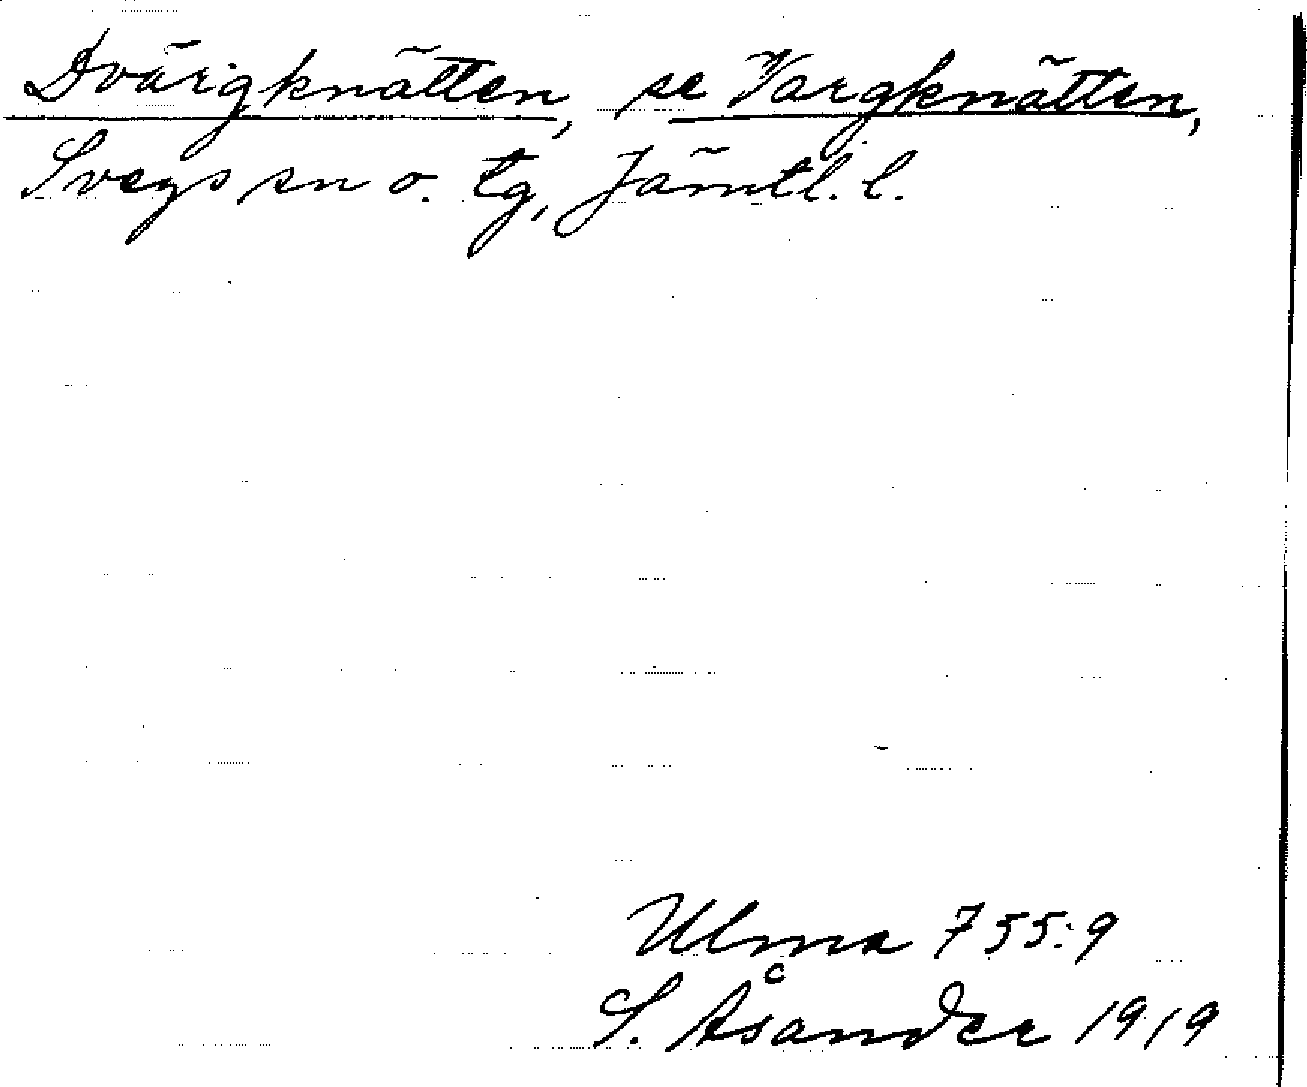 Dvärgknätten, se Vargknätten,
Svegs sn o. tg, Jämtl. l.
Ulma 755:9
S. Åsander 1919